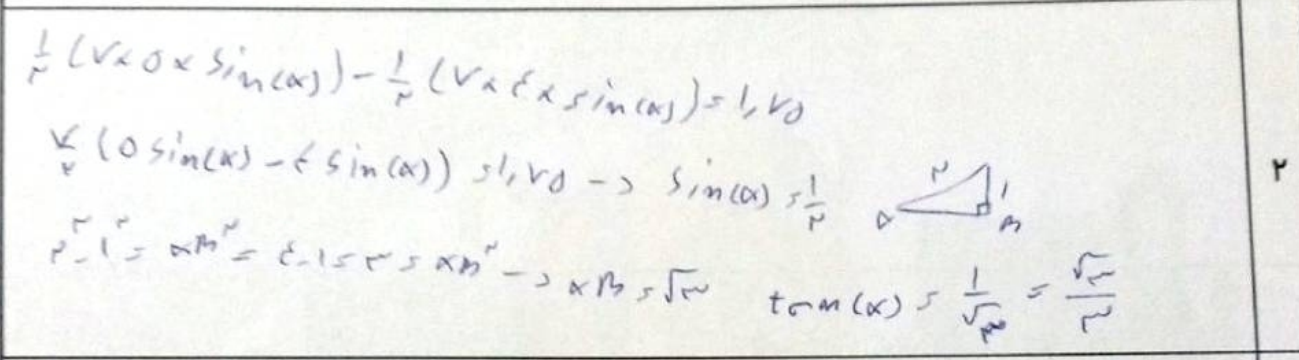 ۱/۲ (۷×۵×sin(α)) - ۱/۲ (۷×۴×sin(α)) = ۱,۷۵
۷/۲ (۵ sin(α) - ۴ sin(α)) = ۱,۷۵ -> sin(α) = ۱/۲
۲ ۱ α B
۲
۲^۲ - ۱^۲ = αB^۲ = ۴-۱ = ۳ = αB^۲ -> αB = √۳ tan(α) = ۱/√۳ = √۳/۳